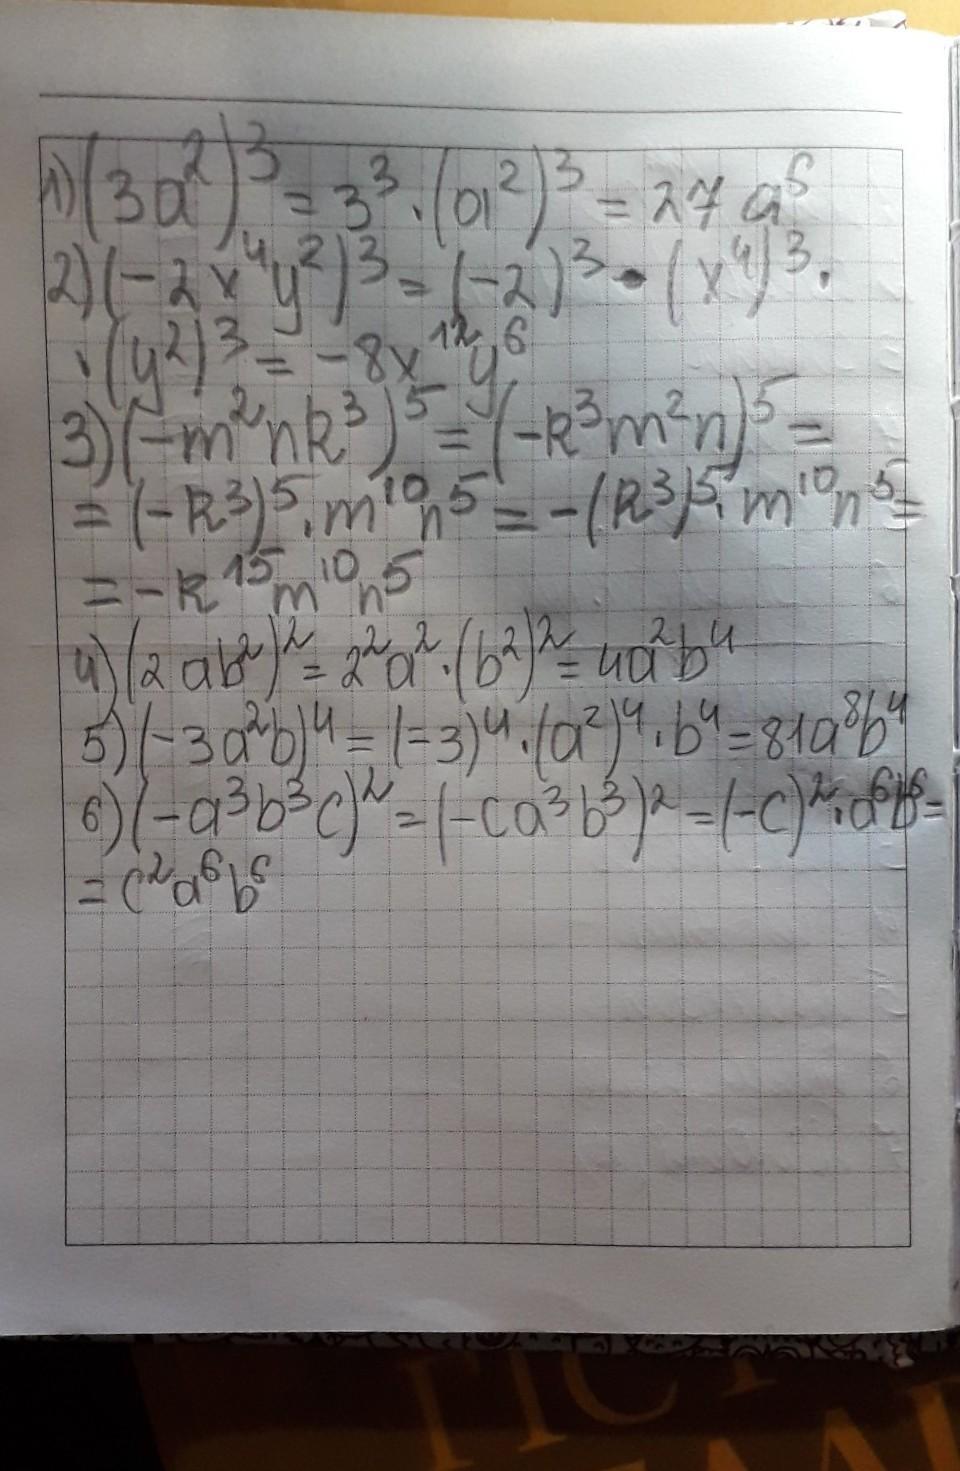 1) (3a²)³ = 3³ · (a²)³ = 27a⁶
2) (-2x⁴y²)³ = (-2)³ · (x⁴)³ ·
· (y²)³ = -8x¹²y⁶
3) (-m²nk³)⁵ = (-k³m²n)⁵ =
= (-k³)⁵ · m¹⁰n⁵ = -(k³)⁵ · m¹⁰n⁵ =
= -k¹⁵m¹⁰n⁵
4) (2ab²)² = 2²a² · (b²)² = 4a²b⁴
5) (-3a²b)⁴ = (-3)⁴ · (a²)⁴ · b⁴ = 81a⁸b⁴
6) (-a³b³c)² = (-ca³b³)² = (-c)² · a⁶b⁶ =
= c²a⁶b⁶